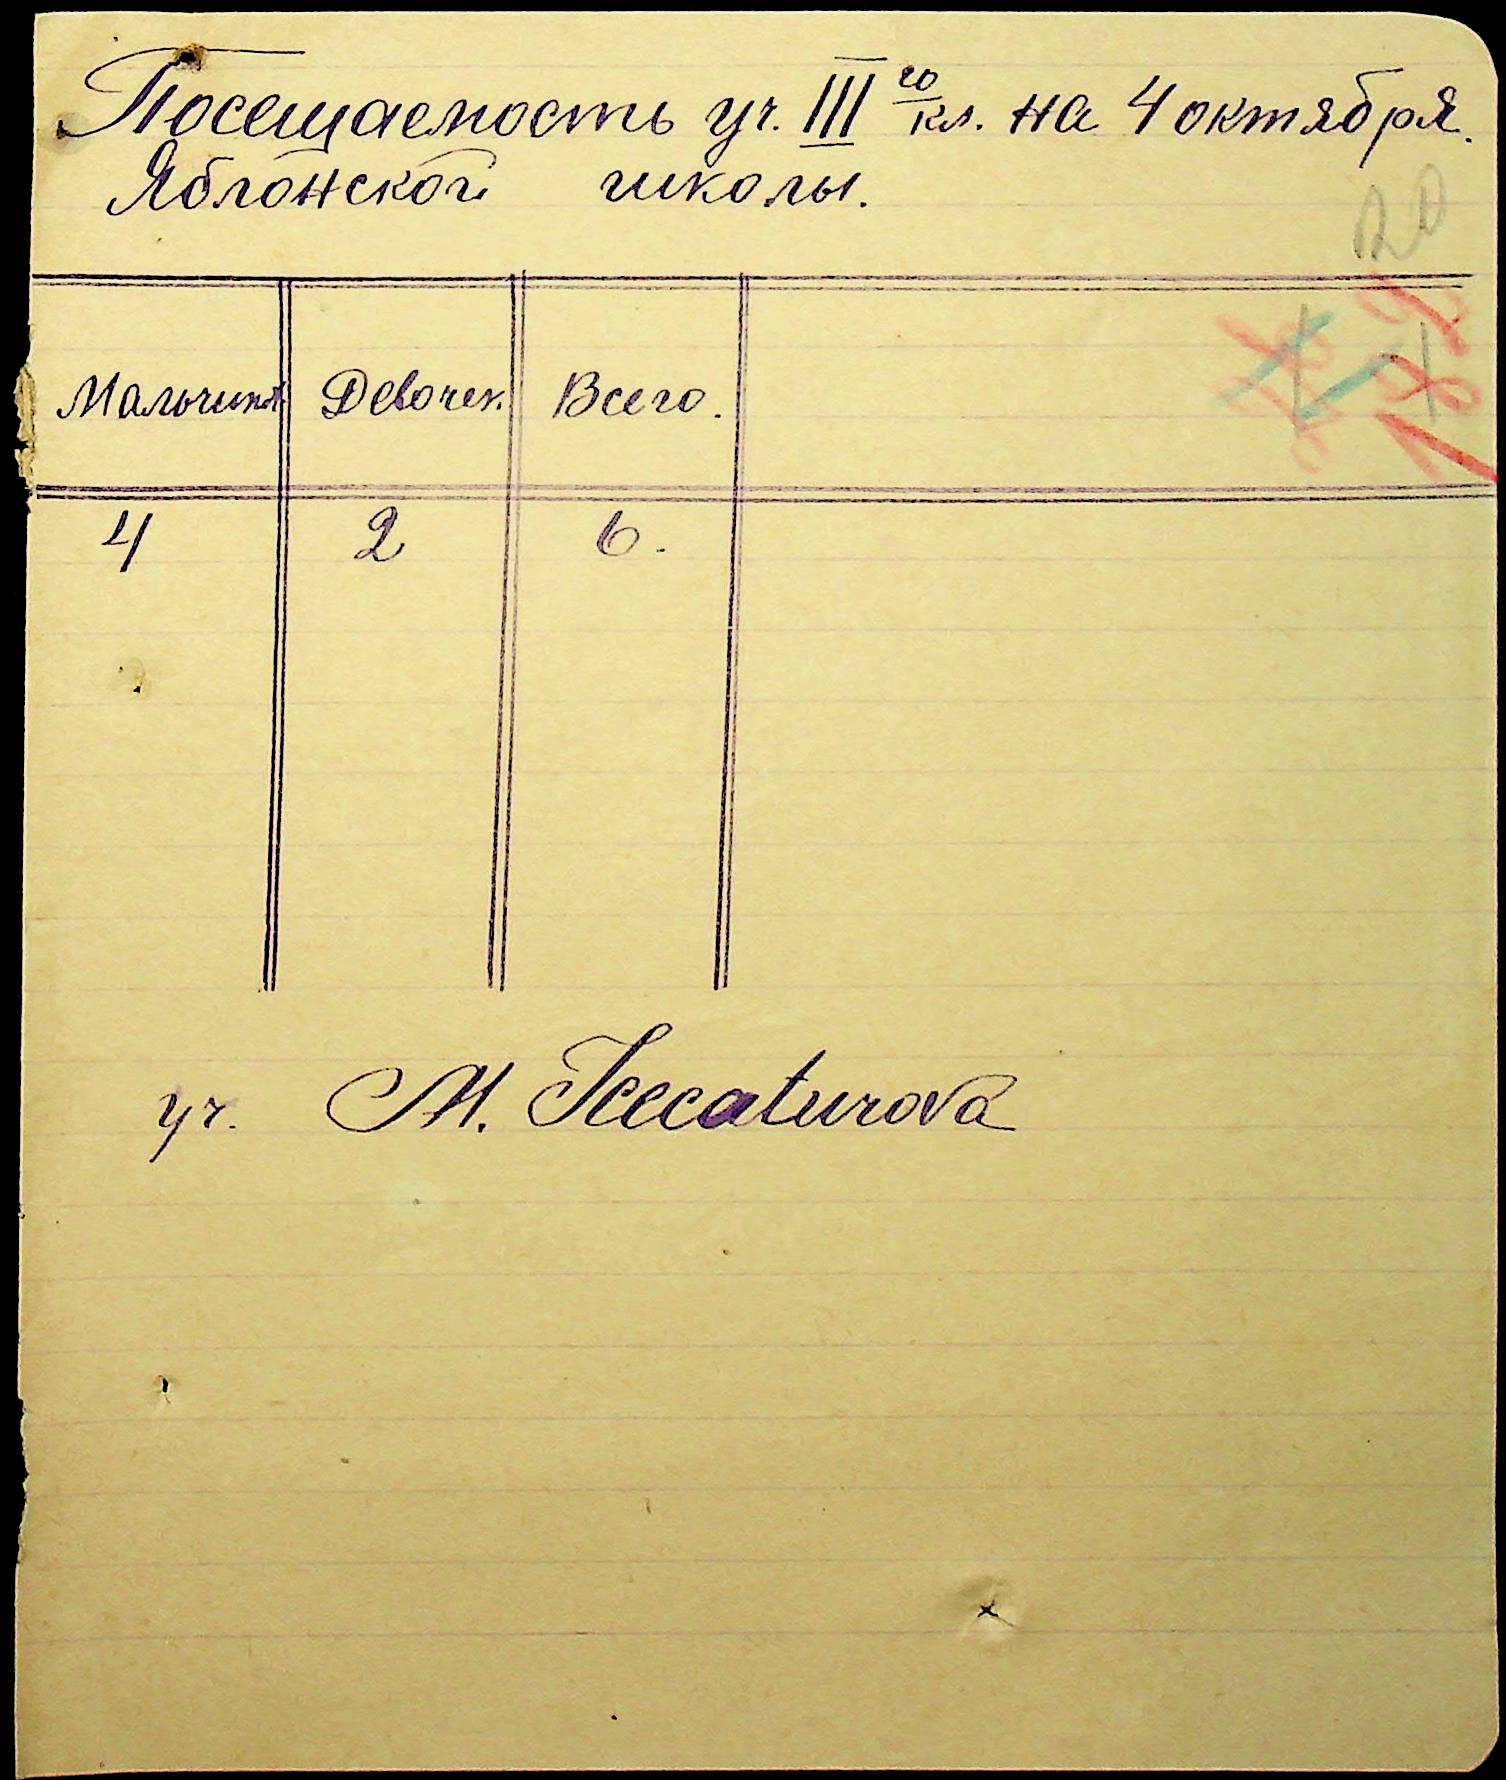 Посещаемость уч. III го кл. на 4 октября.
Яблонской школы.
20
Мальчиков Девочек. Всего.
4 2 6.
уч. M.